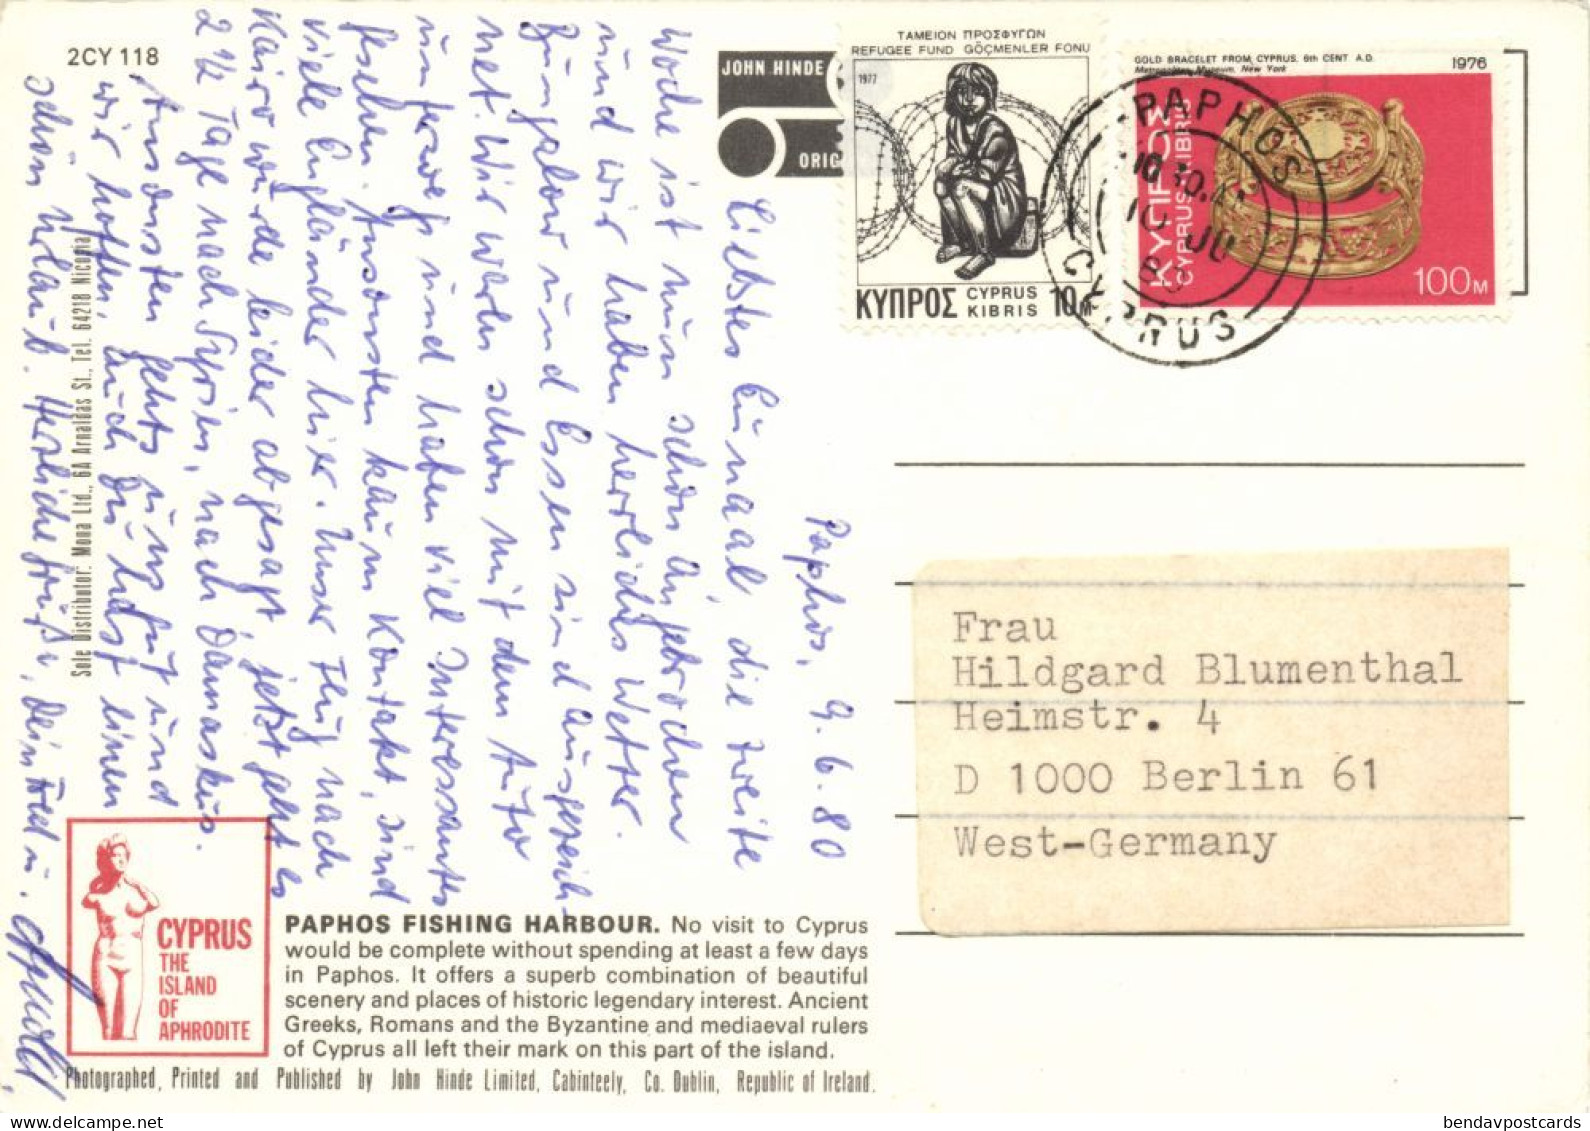 2CY 118
JOHN HINDE
ORIG
ΤΑΜΕΙΟΝ ΠΡΟΣΦΥΓΩΝ
REFUGEE FUND GÖÇMENLER FONU
1977
ΚΥΠΡΟΣ CYPRUS KIBRIS 10M
GOLD BRACELET FROM CYPRUS, 6th CENT A.D.
Metropolitan Museum, New York
1976
ΚΥΠΡΟΣ
CYPRUS KIBRIS
100M
PAPHOS
CYPRUS
Paphos, 9.6.80
Liebstes die zweite
Woche ist nun schon angebrochen
und wir haben herrliches Wetter.
Bungalow und Essen sind ausgezeich-
net. Wir waren schon mit dem Auto
unterwegs und haben viel Interessantes
gesehen. Ansonsten kaum Kontakt, sind
viele Engländer hier. Unser Flug nach
Kairo wurde leider abgesagt, jetzt geht es
2 ½ Tage nach Syrien, nach Damaskus.
Ansonsten gehts uns gut und
wir hoffen, auch Du hast einen
schön Urlaub. Herzliche Grüße, Dein
Sole Distributor: Mona Ltd., 6A Arnaldas St., Tel. 64218 Nicosia
Frau
Hildgard Blumenthal
Heimstr. 4
D 1000 Berlin 61
West-Germany
CYPRUS
THE
ISLAND
OF
APHRODITE
PAPHOS FISHING HARBOUR. No visit to Cyprus
would be complete without spending at least a few days
in Paphos. It offers a superb combination of beautiful
scenery and places of historic legendary interest. Ancient
Greeks, Romans and the Byzantine and mediaeval rulers
of Cyprus all left their mark on this part of the island.
Photographed, Printed and Published by John Hinde Limited, Cabinteely, Co. Dublin, Republic of Ireland.
bendavpostcards